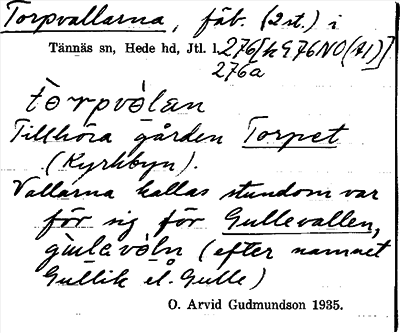 Torpvallarna, fäb. (2 st.) i
Tännäs sn, Hede hd, Jtl. l. 276 [k G 76 NO (A1)]
276a
tòrpvòlan
Tillhöra gården Torpet
(Kyrkbyn).
Vallarna kallas stundom var
för sig för Gullevallen,
(efter namnet
Gullik el. Gulle)
O. Arvid Gudmundson 1935.